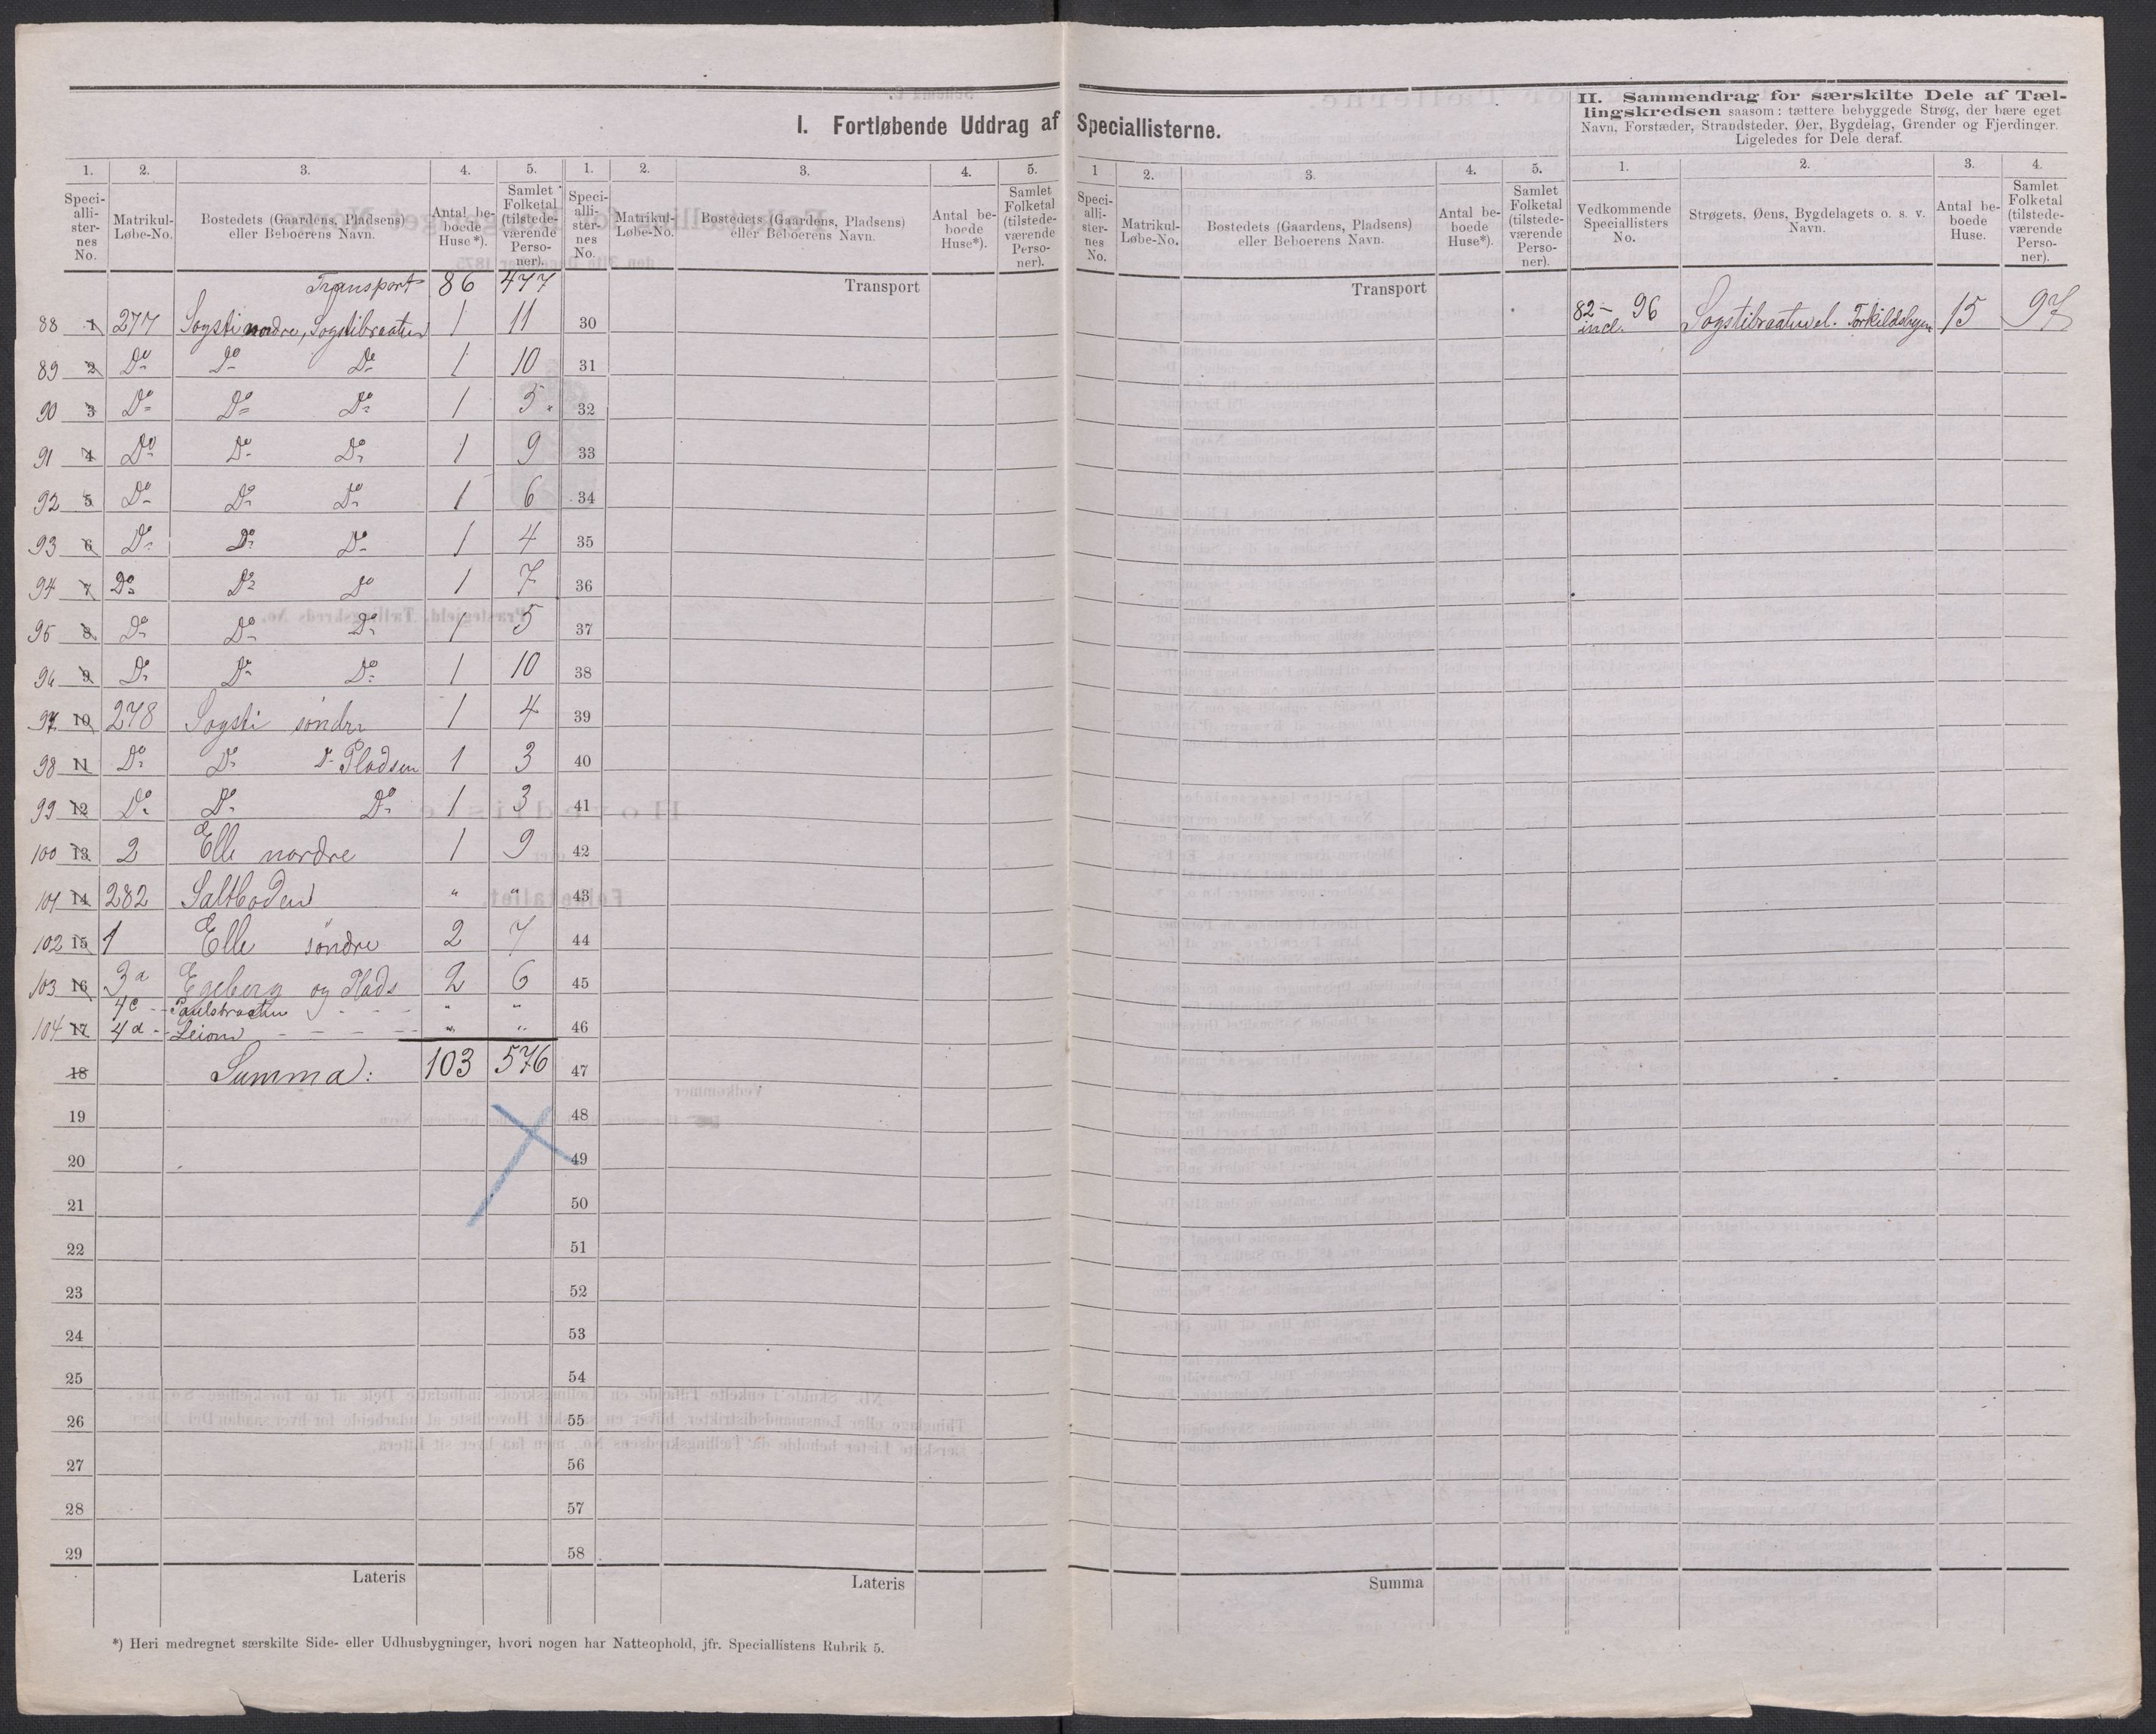 I. Fortløbende Uddrag af Speciallisterne.
II. Sammendrag for særskilte Dele af Tæl-
lingskredsen saasom: tættere bebyggede Strøg, der bære eget
Navn, Forstæder, Strandsteder, Øer, Bygdelag, Grender og Fjerdinger.
Ligeledes for Dele deraf.
1. 2. 3. 4. 5. 1. 2. 3. 4. 5. 1 2. 3. 4. 5. 1. 2. 3. 4.
Speci-
alli-
ster-
nes
No.
Matrikul-
Løbe-No.
Bostedets (Gaardens, Pladsens)
eller Beboerens Navn.
Antal be-
boede
Huse*).
Samlet
Folketal
(tilstede-
værende
Perso-
ner).
Speci-
alli-
ster-
nes
No.
Matrikul-
Løbe-No.
Bostedets (Gaardens, Pladsens)
eller Beboerens Navn.
Antal be-
boede
Huse*).
Samlet
Folketal
(tilstede-
værende
Perso-
ner).
Speci-
alli-
ster-
nes
No.
Matrikul-
Løbe-No.
Bostedets (Gaardens, Pladsens)
eller Beboerens Navn.
Antal be-
boede
Huse*).
Samlet
Folketal
(tilstede-
værende
Perso-
ner).
Vedkommende
Speciallisters
No.
Strøgets, Øens, Bygdelagets o. s. v.
Navn.
Antal be-
boede
Huse.
Samlet
Folketal
(tilstede-
værende
Perso-
ner).
Transport 86 477
Transport
Transport
88 1 277 Sogsti nordre, Sogstibraaten 1 11 30
89 2 Do Do Do 1 10 31
90 3 Do Do Do 1 5 32
91 4 Do Do Do 1 9 33
92 5 Do Do Do 1 6 34
93 6 Do Do Do 1 4 35
94 7 Do Do Do 1 7 36
95 8 Do Do Do 1 5 37
96 9 Do Do Do 1 10 38
97 10 278 Sogsti søndre 1 4 39
98 11 Do Do Do Pladsen 1 3 40
99 12 Do Do Do 1 3 41
100 13 2 Elle nordre 1 9 42
101 14 282 Saltboden " " 43
102 15 1 Elle søndre 2 7 44
103 16 3a Egeberg og Plads 2 6 45
4c - - Paulsbraaten - - - " "
104 17 4d - - Leion - - - - " " 46
18 Summa: 103 576 47
19 48
20 49
21 50
22 51
23 52
24 53
25 54
26 55
27 56
28 57
29 58
Lateris
Lateris
Summa
82 - 96
incl.
Sogstibraaten el. Torkildsbyen 15 97
*) Heri medregnet særskilte Side- eller Udhusbygninger, hvori nogen har Natteophold, jfr. Speciallistens Rubrik 5.